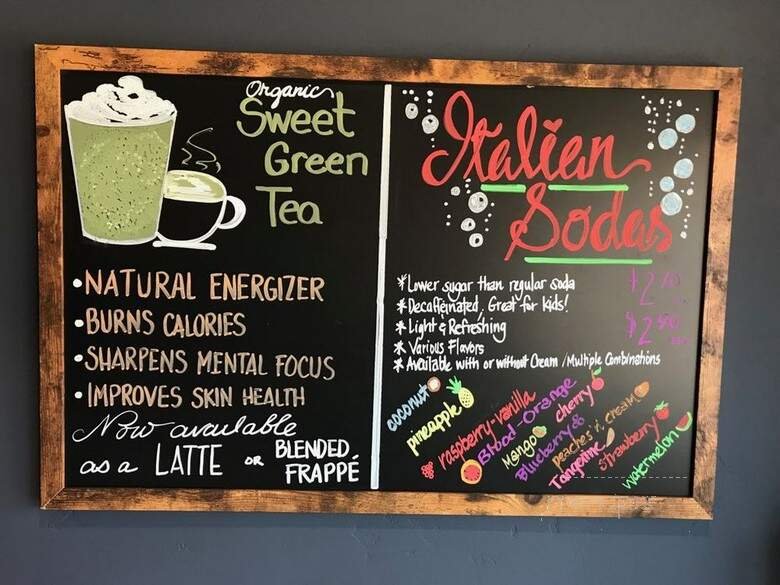 Organic
Sweet
Green
Tea
•NATURAL ENERGIZER
•BURNS CALORIES
•SHARPENS MENTAL FOCUS
•IMPROVES SKIN HEALTH
Now available
as a LATTE OR BLENDED FRAPPÉ
Italian
Sodas
*Lower sugar than regular soda
*Decaffeinated, Great for kids!
*Light & Refreshing
*Various Flavors
*Available with or without Cream / Multiple Combinations
coconut
pineapple
raspberry-vanilla
Blood-Orange
Mango
cherry
Blueberry &
peaches n' cream
Tangerine
strawberry
watermelon